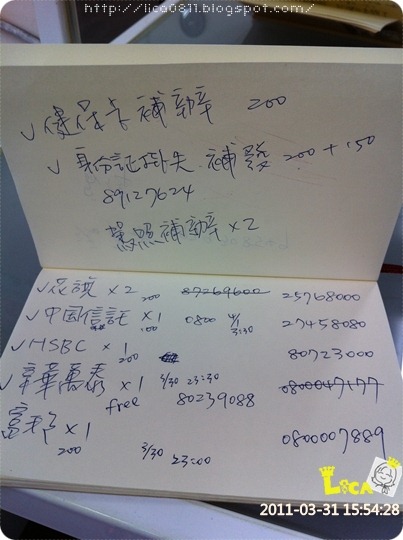 http://lica0811.blogspot.com/
✓健保卡補辦 200
✓身份証掛失 補發 200 + 150
89127624
駕照補辦 ×2
✓花旗 ×2 200 87269600 25768000
✓中国信託 ×1 100 0800 4/1 3:30 27458080
✓HSBC ×1 200 80723000
✓華 萬泰 ×1 3/30 23:30 0800047177
free 80239088
富邦 ×1 0800007889
200 3/30 23:00
LiCA
2011-03-31 15:54:28